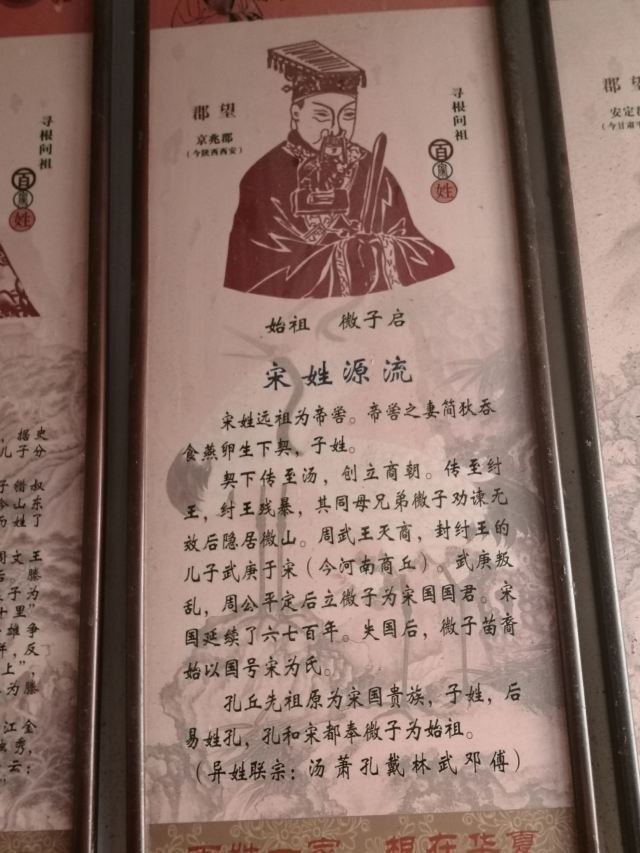 郡望
京兆郡
(今陕西西安)
寻根问祖
百
家
姓
始祖 微子启
宋姓源流
宋姓远祖为帝喾。帝喾之妻简狄吞
食燕卵生下契，子姓。
契下传至汤，创立商朝。传至纣
王，纣王残暴，其同母兄弟微子劝谏无
效后隐居微山。周武王灭商，封纣王的
儿子武庚于宋（今河南商丘）。武庚叛
乱，周公平定后立微子为宋国国君。宋
国延续了六七百年。失国后，微子苗裔
始以国号宋为氏。
孔丘先祖原为宋国贵族，子姓，后
易姓孔，孔和宋都奉微子为始祖。
（异姓联宗：汤萧孔戴林武邓傅）
寻根问祖
百
家
姓
，据史
儿子分
子错叔
今山东
而姓了
周文王
后。滕
子为
十里”
雄争
，反
上”，
为滕
江金
秀，
云：
郡望
安定